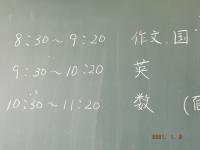 8:30〜9:20 作文.国
9:30〜10:20 英
10:30〜11:20 数 (